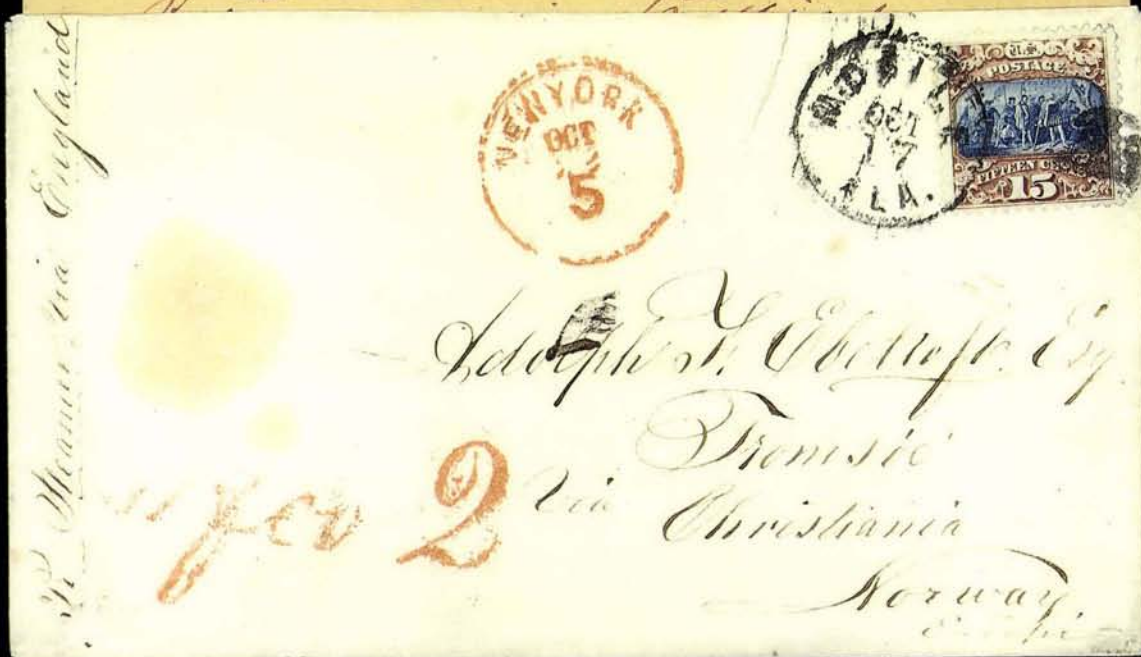 Pr Steamer via England
NEW YORK
OCT
5
MOBILE
OCT
17
ALA.
U.S.
POSTAGE
FIFTEEN CENTS
15
Adolph Ebeltoft. Esq
Tromsöe
via
Christiania
Norway
fco 2